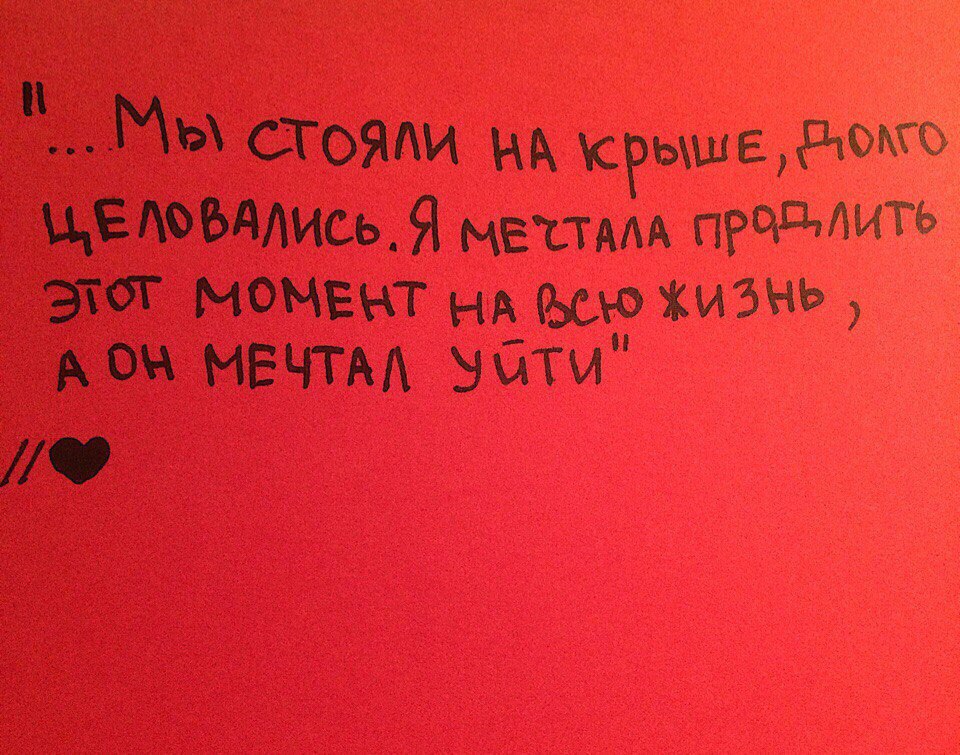 "...Мы стояли на крыше, долго
целовались. Я мечтала продлить
этот момент на всю жизнь,
а он мечтал уйти"
//♥